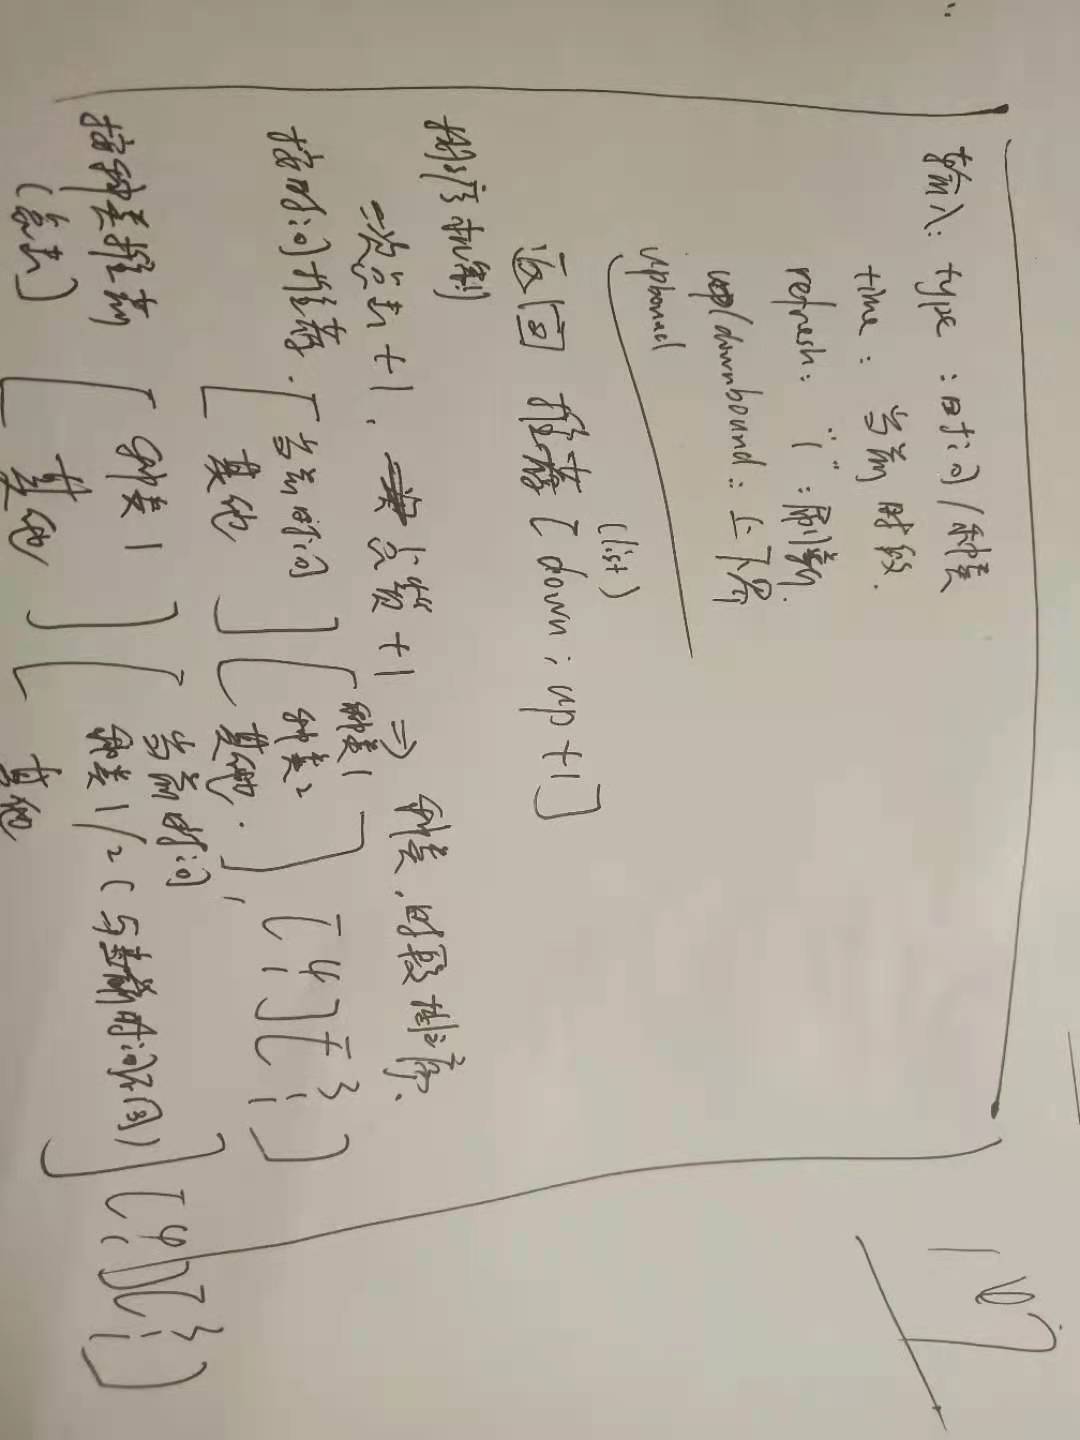 输入: type : 时间/种类
time : 当前时段.
refresh: "1" : 刷新.
up/downbound: 上下界
upbound
(list)
返回 推荐 [down : up +1]
排序机制
一次点击 +1, 点赞 +1 ⇒ 种类、时段排序.
按时间推荐. [当前时间 其他] [种类1 种类2 其他.],
按种类推荐 (点击) [种类1 其他] [当前时间 种类1/2 (与当前时间不同) 其他]